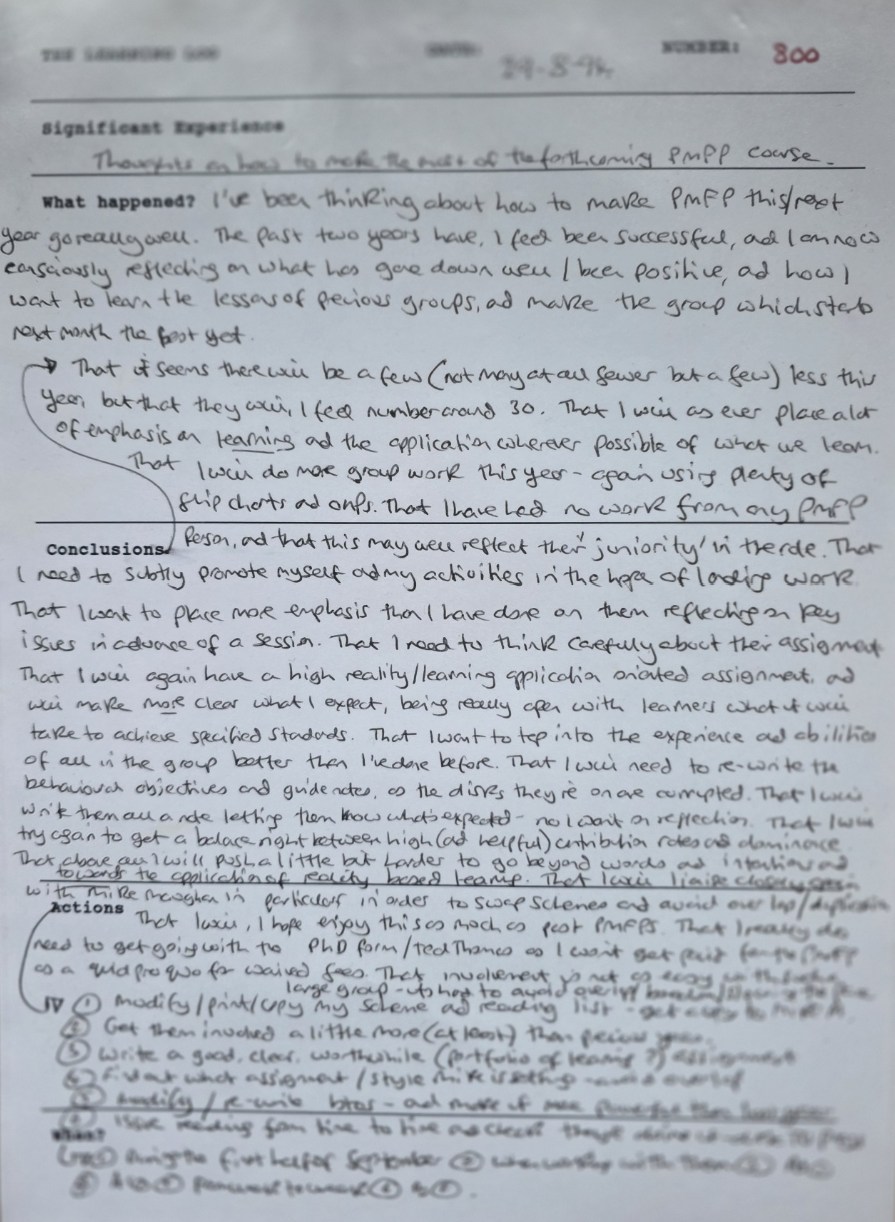 THE LEARNING LOG DATE: 29-8-94 NUMBER: 800
Significant Experience
Thoughts on how to make the most of the forthcoming PMPP course.
What happened? I've been thinking about how to make PMPP this/next
year go really well. The past two years have, I feel been successful, and I am now
consciously reflecting on what has gone down well / been positive, and how I
want to learn the lessons of previous groups, and make the group which starts
next month the best yet.
That it seems there will be a few (not many at all fewer but a few) less this
year, but that they will, I feel number around 30. That I will as ever place a lot
of emphasis on learning and the application wherever possible of what we learn.
That I will do more group work this year - again using plenty of
flip charts and OHPs. That I have had no work from any PMPP
Conclusions Person, and that this may well reflect their 'juniority' in the role. That
I need to subtly promote myself and my activities in the hope of landing work
That I want to place more emphasis than I have done on them reflecting on key
issues in advance of a session. That I need to think carefully about their assignment
That I will again have a high reality/learning application oriented assignment, and
will make more clear what I expect, being really open with learners what it will
take to achieve specified standards. That I want to tap into the experience and abilities
of all in the group better than I've done before. That I will need to re-write the
behavioural objectives and guide notes, as the disks they're on are corrupted. That I will
write them all a note letting them know what's expected - no I want on reflection. That I will
try again to get a balance right between high (and helpful) contribution rates and dominance
That above all I will push a little bit harder to go beyond words and intentions and
towards the application of reality based learning. That I will liaise closely again
with Mike in particular in order to swap schemes and avoid over lap/duplication
Actions That I will, I hope enjoy this as much as past PMPPs. That I really do
need to get going with the PhD form/Ted Thomas as I won't get paid for the PMPP
as a quid pro quo for waived fees. That involvement is not as easy in
large group - to avoid
① Modify/print/copy my scheme and reading list - get a copy to
② Get them involved a little more (at least) than previous years.
③ Write a good, clear, worthwhile (portfolio of learning?) assignment
④ Find out what assignment/style Mike is setting - avoid overlap
⑤ Modify / re-write - and make it more powerful than last year
⑥ Issue reading from time to time and check
When?
During the first half of September ② when working with them